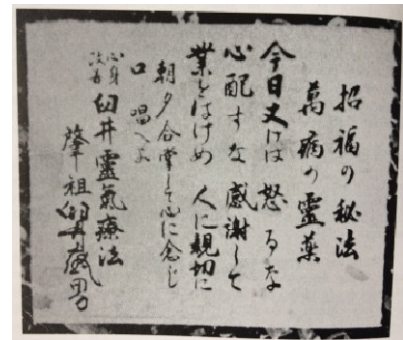 招福の秘法
萬病の靈薬
今日丈けは怒るな
心配すな感謝して
業をはげめ人に親切に
朝夕合掌して心に念じ
口に唱へよ
心身
改善
臼井靈氣療法
肇祖
臼井甕男